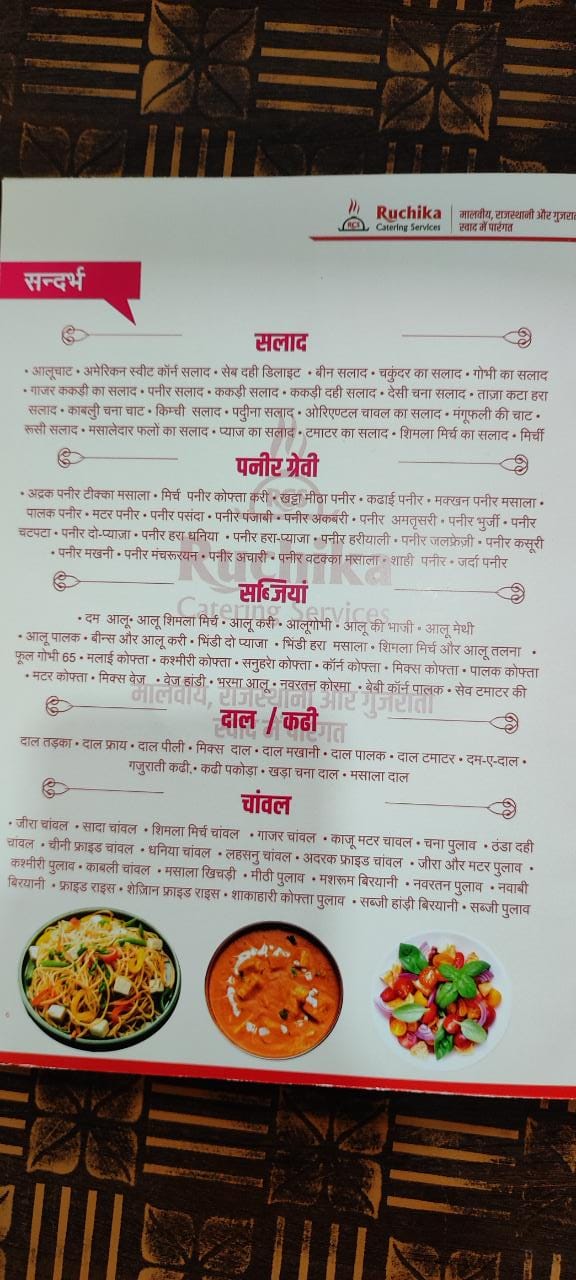 Ruchika
Catering Services
RCS
मालवीय, राजस्थानी और गुजरा
स्वाद में पारंगत
सन्दर्भ
सलाद
• आलूचाट • अमेरिकन स्वीट कॉर्न सलाद • सेब दही डिलाइट • बीन सलाद • चकुंदर का सलाद • गोभी का सलाद
• गाजर ककड़ी का सलाद • पनीर सलाद • ककड़ी सलाद • ककड़ी दही सलाद • देसी चना सलाद • ताज़ा कटा हरा
सलाद • काबलुी चना चाट • किम्ची सलाद • पदुीना सलाद • ओरिएण्टल चावल का सलाद • मंगूफली की चाट •
रूसी सलाद • मसालेदार फलों का सलाद • प्याज का सलाद • टमाटर का सलाद • शिमला मिर्च का सलाद • मिर्ची
पनीर ग्रेवी
• अद्रक पनीर टीक्का मसाला • मिर्च पनीर कोफ्ता करी • खट्टा मीठा पनीर • कढाई पनीर • मक्खन पनीर मसाला •
पालक पनीर • मटर पनीर • पनीर पसंदा • पनीर पंजाबी • पनीर अकबरी • पनीर अमतृसरी • पनीर भुर्जी • पनीर
चटपटा • पनीर दो-प्याजा • पनीर हरा धनिया • पनीर हरा-प्याजा • पनीर हरीयाली • पनीर जलफ्रेज़ी • पनीर कसूरी
• पनीर मखनी • पनीर मंचरूरयन • पनीर अचारी • पनीर चटक्का मसाला • शाही पनीर • जर्दा पनीर
Ruchika
Catering Services
सब्जियां
• दम आलू• आलू शिमला मिर्च • आलू करी • आलूगोभी • आलू की भाजी • आलू मेथी
• आलू पालक • बीन्स और आलू करी • भिंडी दो प्याजा • भिंडी हरा मसाला • शिमला मिर्च और आलू तलना •
फूल गोभी 65 • मलाई कोफ्ता • कश्मीरी कोफ्ता • सनुहरेा कोफ्ता • कॉर्न कोफ्ता • मिक्स कोफ्ता • पालक कोफ्ता
• मटर कोफ्ता • मिक्स वेज • वेज हांडी • भरमा आलू • नवरतन कोरमा • बेबी कॉर्न पालक • सेव टमाटर की
मालवीय, राजस्थानी और गुजराती
स्वाद में पारंगत
दाल / कढी
दाल तड़का • दाल फ्राय • दाल पीली • मिक्स दाल • दाल मखानी • दाल पालक • दाल टमाटर • दम-ए-दाल •
गजुराती कढी,• कढी पकोड़ा • खड़ा चना दाल • मसाला दाल
चांवल
• जीरा चांवल • सादा चांवल • शिमला मिर्च चांवल • गाजर चांवल • काजू मटर चावल • चना पुलाव • ठंडा दही
चांवल • चीनी फ्राइड चांवल • धनिया चांवल • लहसनु चांवल • अदरक फ्राइड चांवल • जीरा और मटर पुलाव •
कश्मीरी पुलाव • काबली चांवल • मसाला खिचड़ी • मीठी पुलाव • मशरूम बिरयानी • नवरतन पुलाव • नवाबी
बिरयानी • फ्राइड राइस • शेज़िान फ्राइड राइस • शाकाहारी कोफ्ता पुलाव • सब्जी हांड़ी बिरयानी • सब्जी पुलाव
6